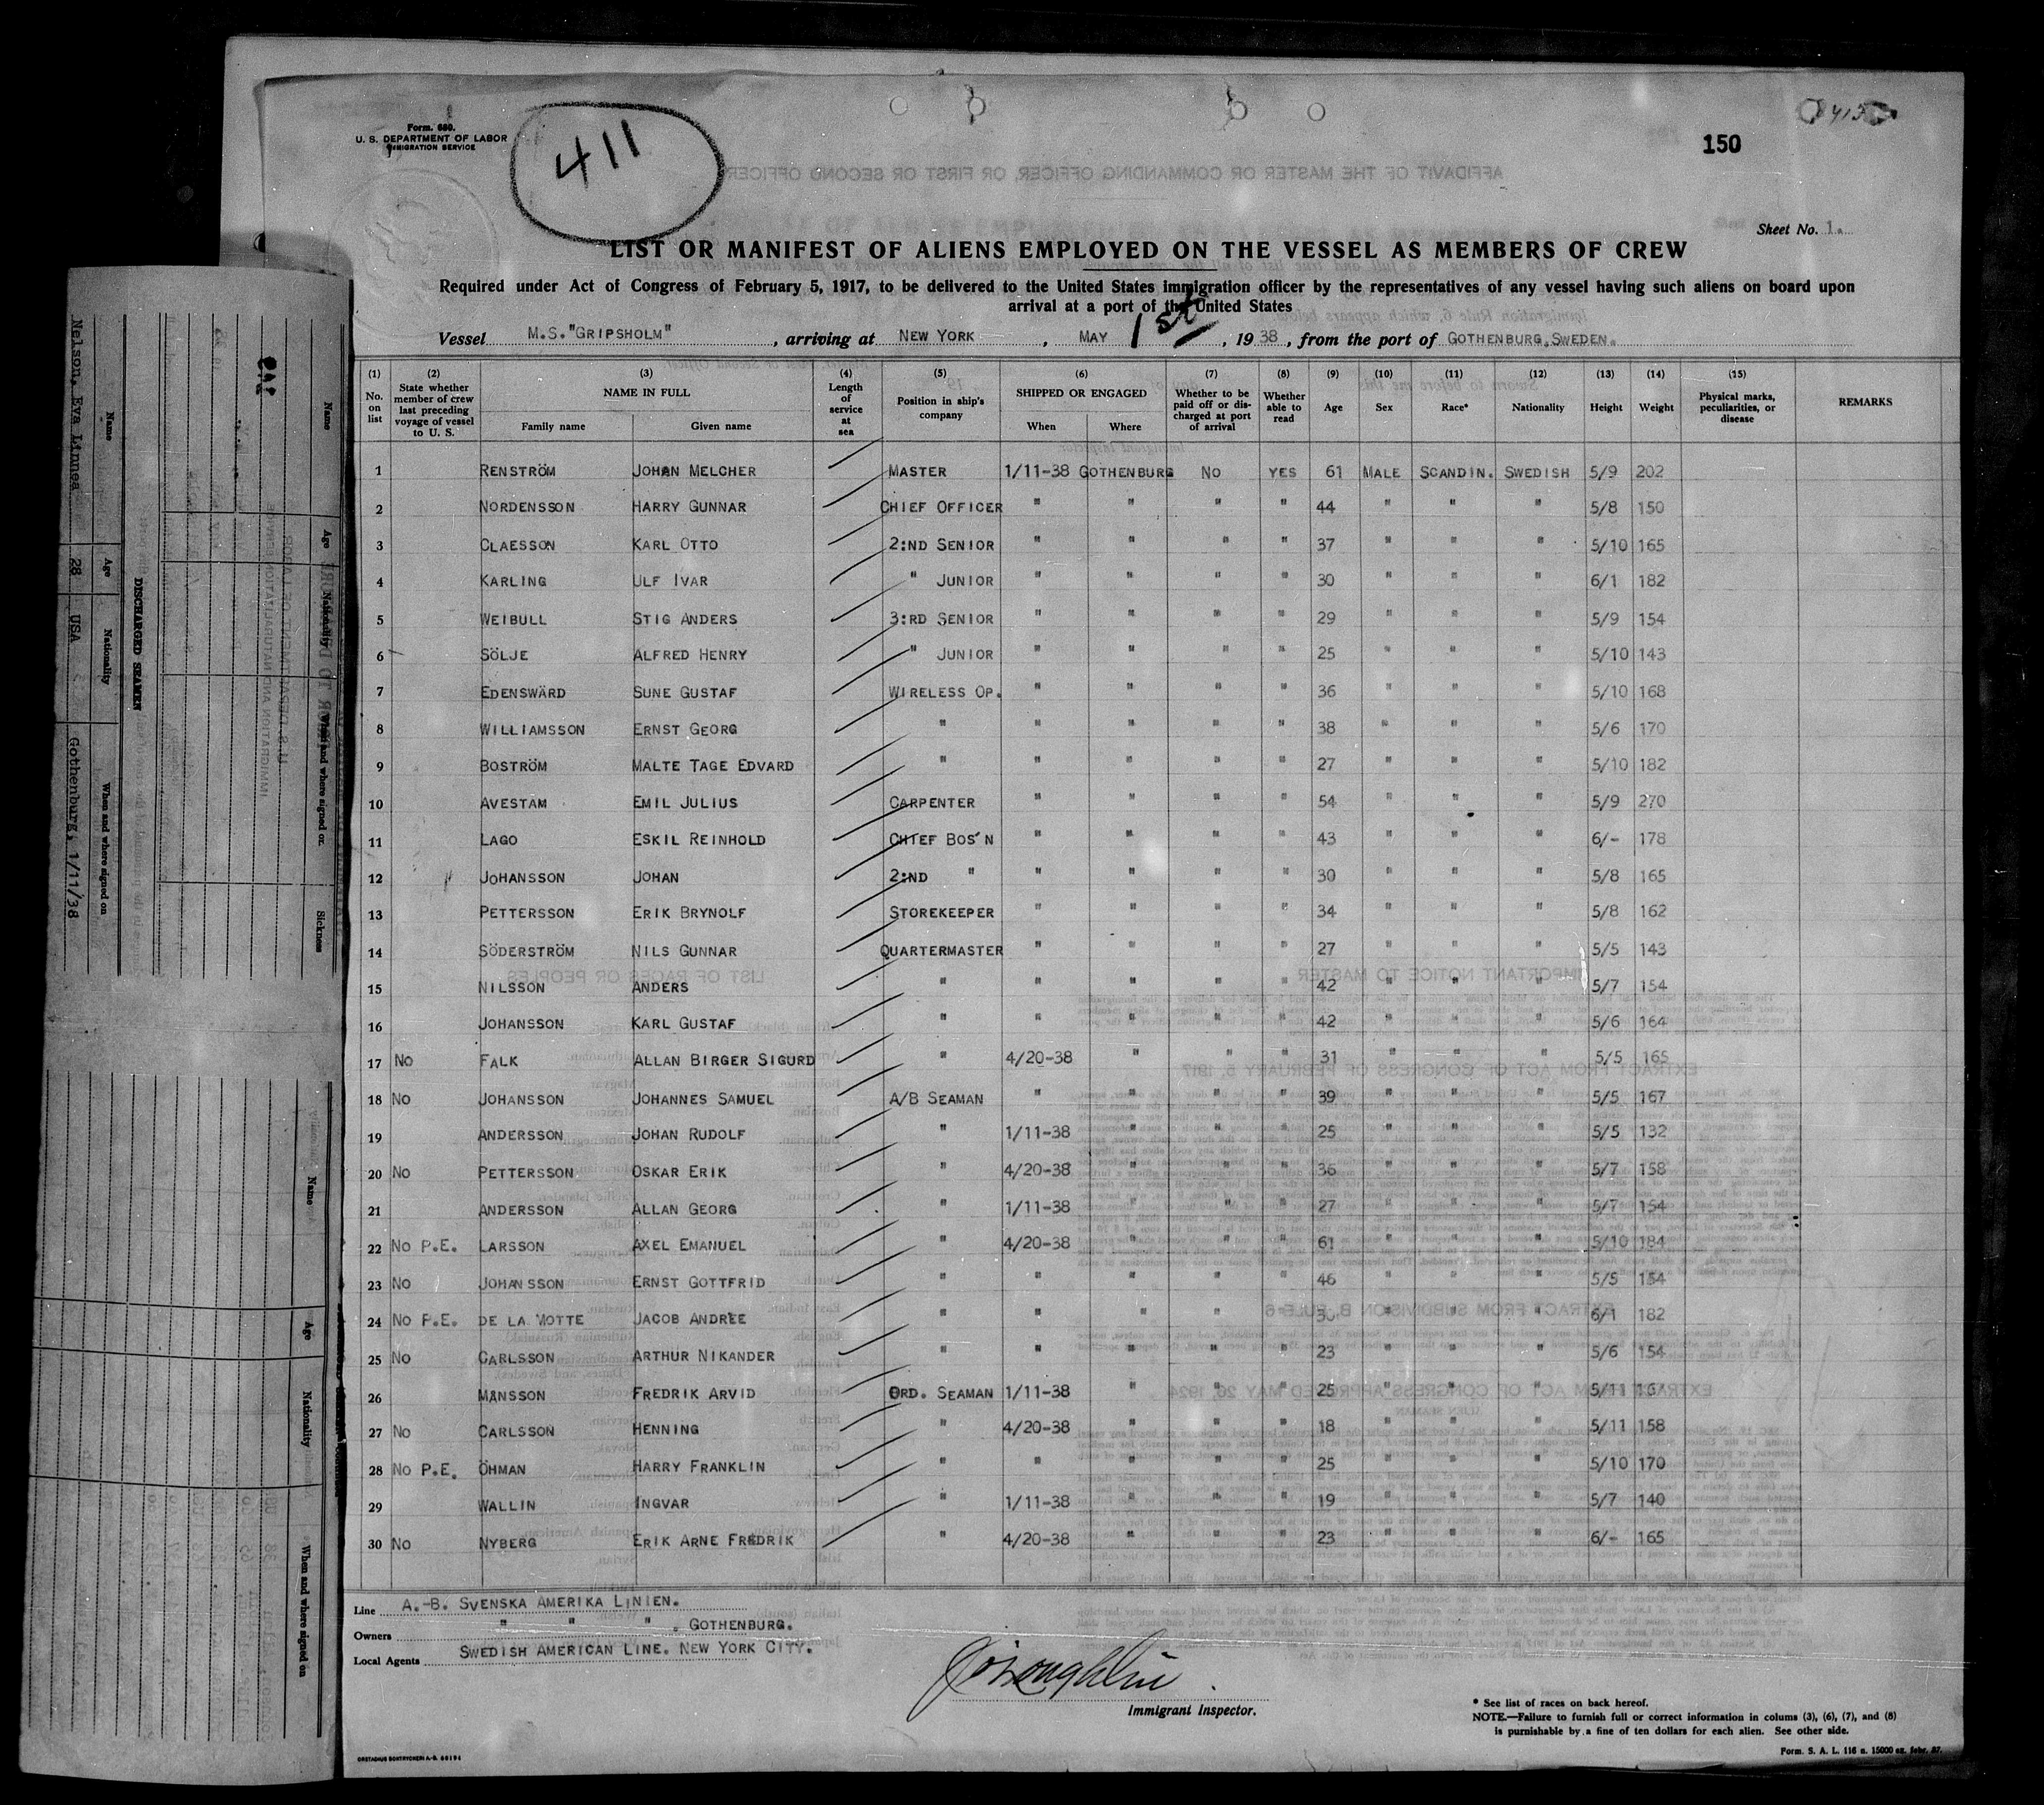 Form. 680.
U. S. DEPARTMENT OF LABOR
IMMIGRATION SERVICE
411
150
Sheet No. 1.
LIST OR MANIFEST OF ALIENS EMPLOYED ON THE VESSEL AS MEMBERS OF CREW
Required under Act of Congress of February 5, 1917, to be delivered to the United States immigration officer by the representatives of any vessel having such aliens on board upon
arrival at a port of the United States
Vessel M.S."GRIPSHOLM", arriving at NEW YORK, MAY 1st, 1938, from the port of GOTHENBURG,SWEDEN.
(1) (2) (3) (4) (5) (6) (7) (8) (9) (10) (11) (12) (13) (14) (15)
No. on list State whether member of crew last preceding voyage of vessel to U. S. NAME IN FULL Family name Given name Length of service at sea Position in ship's company SHIPPED OR ENGAGED When Where Whether to be paid off or discharged at port of arrival Whether able to read Age Sex Race* Nationality Height Weight Physical marks, peculiarities, or disease REMARKS
1 RENSTRÖM JOHAN MELCHER MASTER 1/11-38 GOTHENBURG NO YES 61 MALE SCANDIN. SWEDISH 5/9 202
2 NORDENSSON HARRY GUNNAR CHIEF OFFICER " " " " 44 " " " 5/8 150
3 CLAESSON KARL OTTO 2:ND SENIOR " " " " 37 " " " 5/10 165
4 KARLING ULF IVAR " JUNIOR " " " " 30 " " " 6/1 182
5 WEIBULL STIG ANDERS 3:RD SENIOR " " " " 29 " " " 5/9 154
6 SÖLJE ALFRED HENRY " JUNIOR " " " " 25 " " " 5/10 143
7 EDENSWÄRD SUNE GUSTAF WIRELESS OP. " " " " 36 " " " 5/10 168
8 WILLIAMSSON ERNST GEORG " " " " " 38 " " " 5/6 170
9 BOSTRÖM MALTE TAGE EDVARD " " " " " 27 " " " 5/10 182
10 AVESTAM EMIL JULIUS CARPENTER " " " " 54 " " " 5/9 270
11 LAGO ESKIL REINHOLD CHIEF BOS'N " " " " 43 " " " 6/- 178
12 JOHANSSON JOHAN 2:ND " " " " " 30 " " " 5/8 165
13 PETTERSSON ERIK BRYNOLF STOREKEEPER " " " " 34 " " " 5/8 162
14 SÖDERSTRÖM NILS GUNNAR QUARTERMASTER " " " " 27 " " " 5/5 143
15 NILSSON ANDERS " " " " " 42 " " " 5/7 154
16 JOHANSSON KARL GUSTAF " " " " " 42 " " " 5/6 164
17 NO FALK ALLAN BIRGER SIGURD " 4/20-38 " " " 31 " " " 5/5 165
18 NO JOHANSSON JOHANNES SAMUEL A/B SEAMAN " " " " 39 " " " 5/5 167
19 ANDERSSON JOHAN RUDOLF " 1/11-38 " " " 25 " " " 5/5 132
20 NO PETTERSSON OSKAR ERIK " 4/20-38 " " " 36 " " " 5/7 158
21 ANDERSSON ALLAN GEORG " 1/11-38 " " " 27 " " " 5/7 154
22 NO P.E. LARSSON AXEL EMANUEL " 4/20-38 " " " 61 " " " 5/10 184
23 NO JOHANSSON ERNST GOTTFRID " " " " " 46 " " " 5/5 154
24 NO P.E. DE LA MOTTE JACOB ANDRÈE " " " " " 30 " " " 6/1 182
25 NO CARLSSON ARTHUR NIKANDER " " " " " 23 " " " 5/6 154
26 MÅNSSON FREDRIK ARVID ORD. SEAMAN 1/11-38 " " " 25 " " " 5/11 167
27 NO CARLSSON HENNING " 4/20-38 " " " 18 " " " 5/11 158
28 NO P.E. ÖHMAN HARRY FRANKLIN " " " " " 25 " " " 5/10 170
29 WALLIN INGVAR " 1/11-38 " " " 19 " " " 5/7 140
30 NO NYBERG ERIK ARNE FREDRIK " 4/20-38 " " " 23 " " " 6/- 165
Line A.-B. SVENSKA AMERIKA LINIEN.
Owners " " " . GOTHENBURG.
Local Agents SWEDISH AMERICAN LINE. NEW YORK CITY.
Immigrant Inspector.
* See list of races on back hereof.
NOTE.—Failure to furnish full or correct information in colums (3), (6), (7), and (8)
is punishable by a fine of ten dollars for each alien. See other side.
Form. S. A. L. 116 n. 15000 ex. febr. 37.
DISCHARGED SEAMEN
Name Age Nationality When and where signed on
Nelson, Eva Linnea 28 USA Gothenburg, 1/11/38
Name Age Nationality When and where signed on Sickness
Name Age Nationality When and where signed on